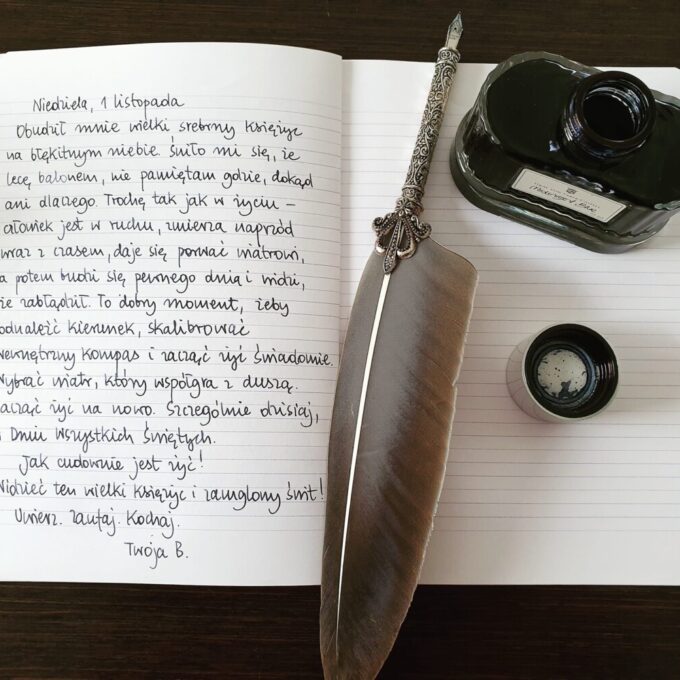 Niedziela, 1 listopada
Obudził mnie wielki srebrny księżyc
na błękitnym niebie. Śniło mi się, że
lecę balonem, nie pamiętam gdzie, dokąd
ani dlaczego. Trochę tak jak w życiu –
człowiek jest w ruchu, zmierza naprzód
wraz z czasem, daje się porwać wiatrowi,
a potem budzi się pewnego dnia i widzi,
że zabłądził. To dobry moment, żeby
odnaleźć kierunek, skalibrować
wewnętrzny kompas i zacząć żyć świadomie.
Wybrać wiatr, który współgra z duszą.
Zacząć żyć na nowo. Szczególnie dzisiaj,
w Dniu Wszystkich Świętych.
Jak cudownie jest żyć!
Widzieć ten wielki księżyc i zamglony świt!
Uwierz. Zaufaj. Kochaj.
Twoja B.